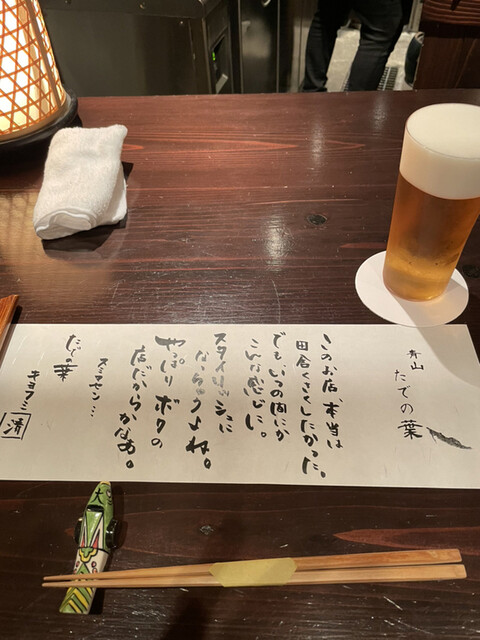 青山
たでの葉
このお店、本当は
田舎くさくしたかった。
でも、いつの間にか
こんな感じに。
スタイリッシュに
なっちゃうよね。
やっぱりボクの
店だからかなあ。
スミマセン…
たでの葉
キヨフミ
清